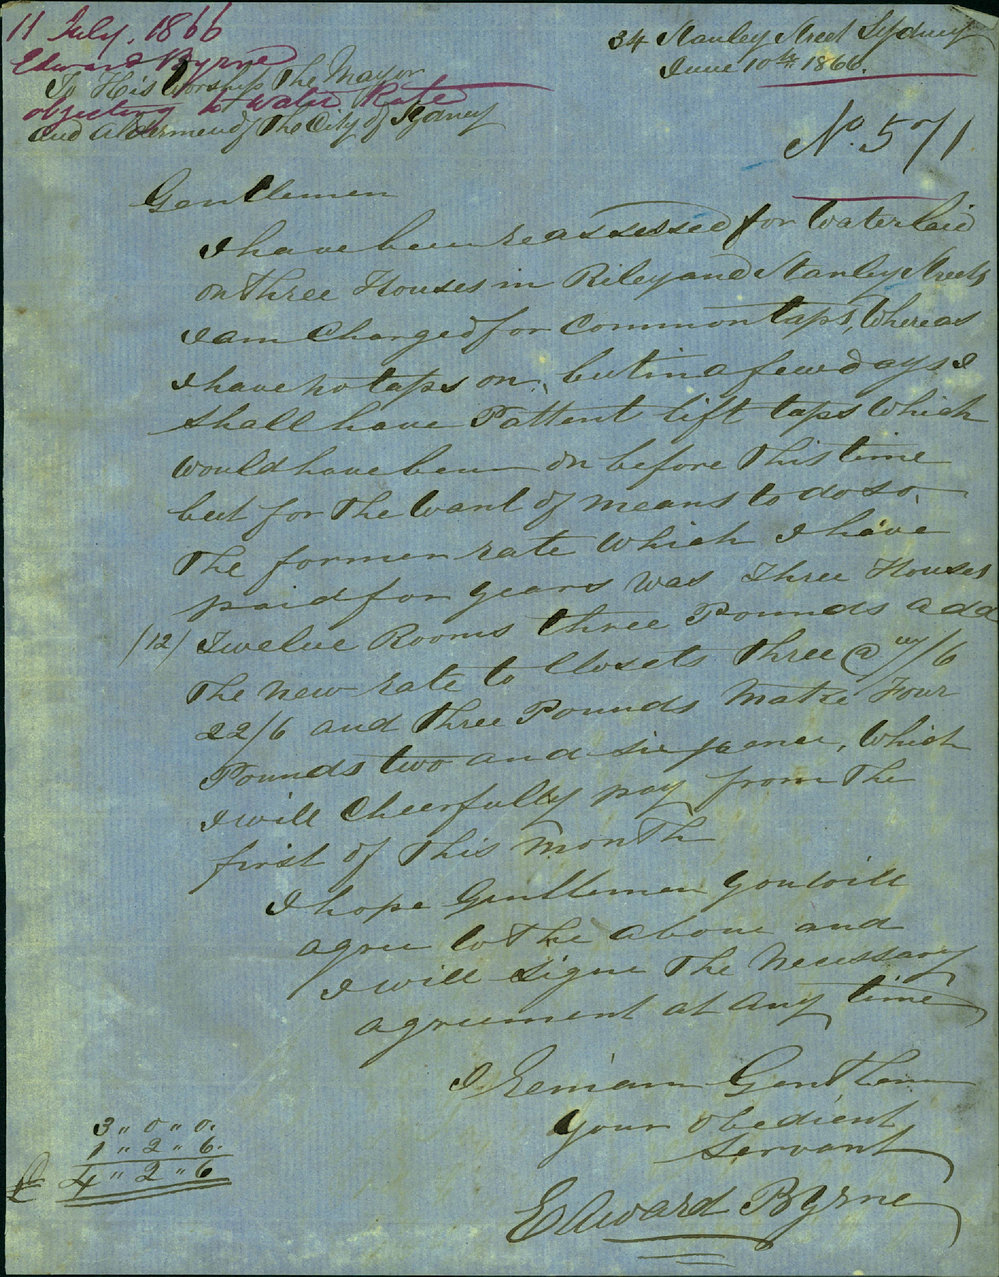 11 July, 1866
Edward Byrne
objecting to Water Rate
34 Stanley Street Sydney
June 10th 1866.
To His Worship The Mayor
and aldermen of The City of Sydney
No. 571
Gentlemen
I have been reassessed for Water laid
on three Houses in Riley and Stanley Streets
I am Charged for Common taps, Whereas
I have no taps on, but in a few days I
shall have Pattent lift taps Which
would have been on before This time
but for The want of means to do so.
The former rate Which I have
paid for years was Three Houses
(12) Twelve Rooms three Pounds add
The new rate to Closets Three @ 7/6
22/6 and three Pounds Make Four
Pounds two and six pence, Which
I will Cheerfully pay from The
first of This Month
I hope Gentlemen you will
agree to The above and
I will Signe The Necessary
agreement at any time
I Remain Gentlemen
Your obedient
Servant
Edward Byrne
3 " 0 " 0.
1 " 2 " 6.
£ 4 " 2 " 6